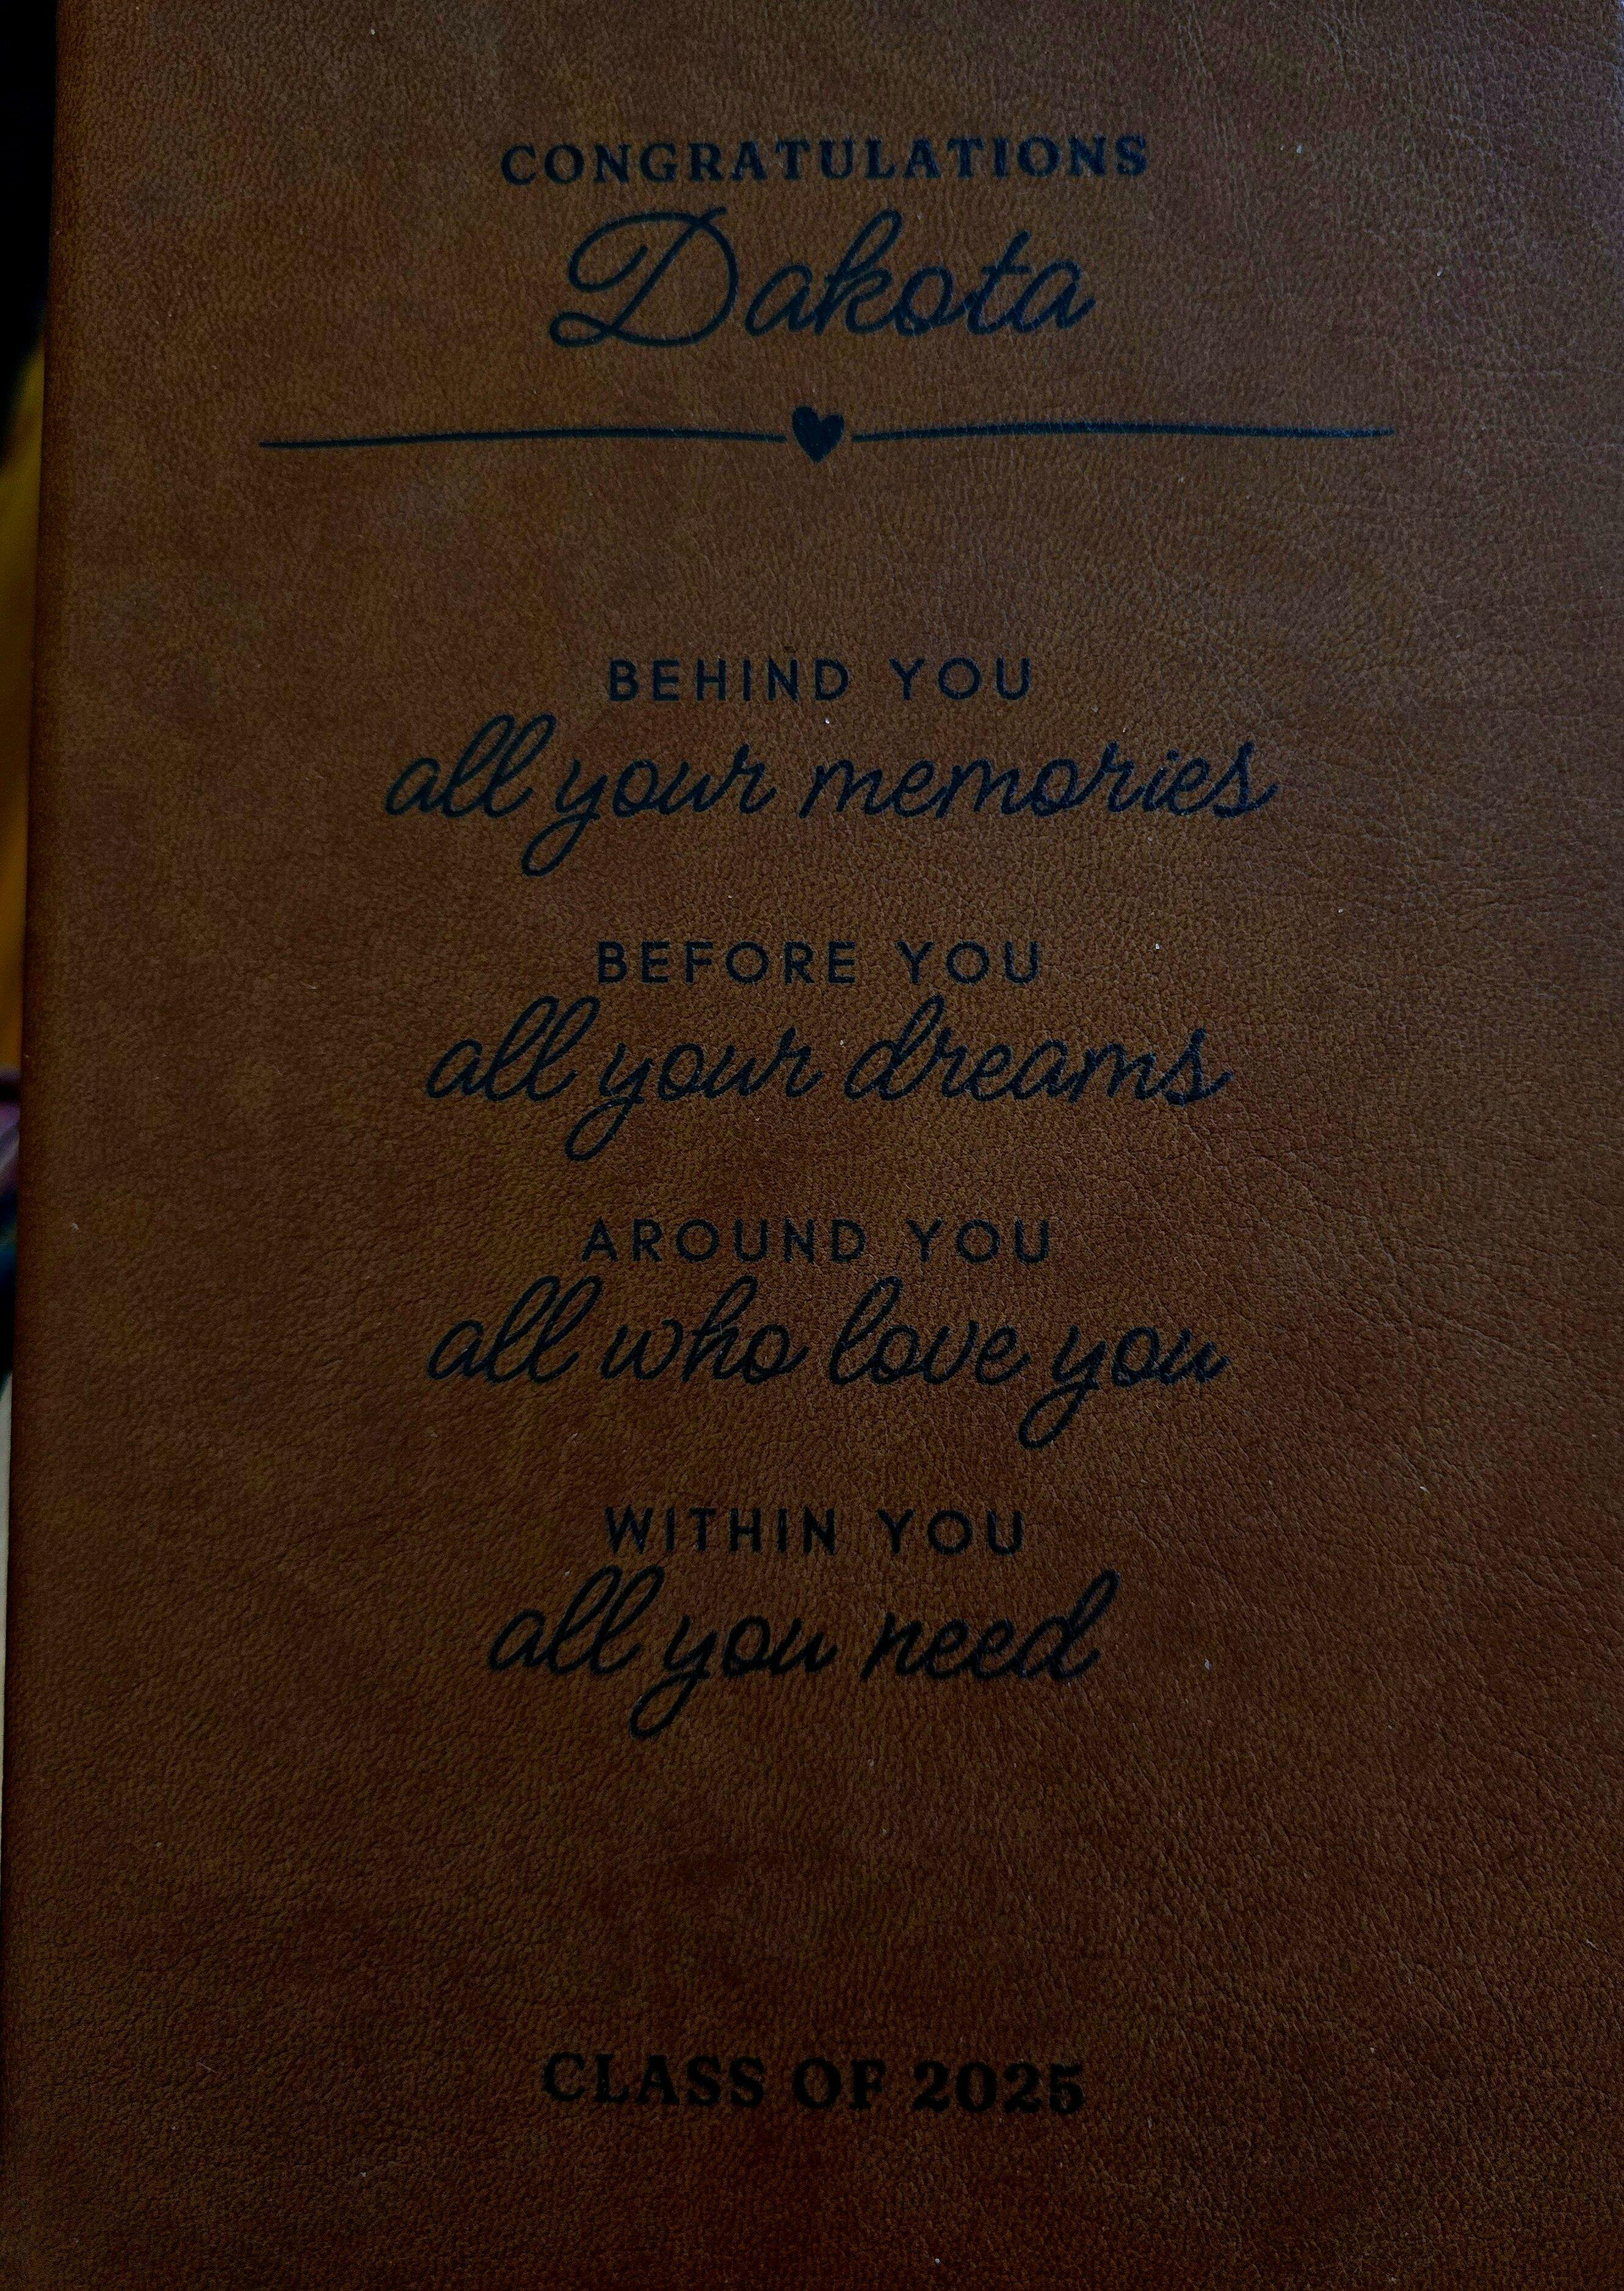 CONGRATULATIONS
Dakota
BEHIND YOU
all your memories
BEFORE YOU
all your dreams
AROUND YOU
all who love you
WITHIN YOU
all you need
CLASS OF 2025